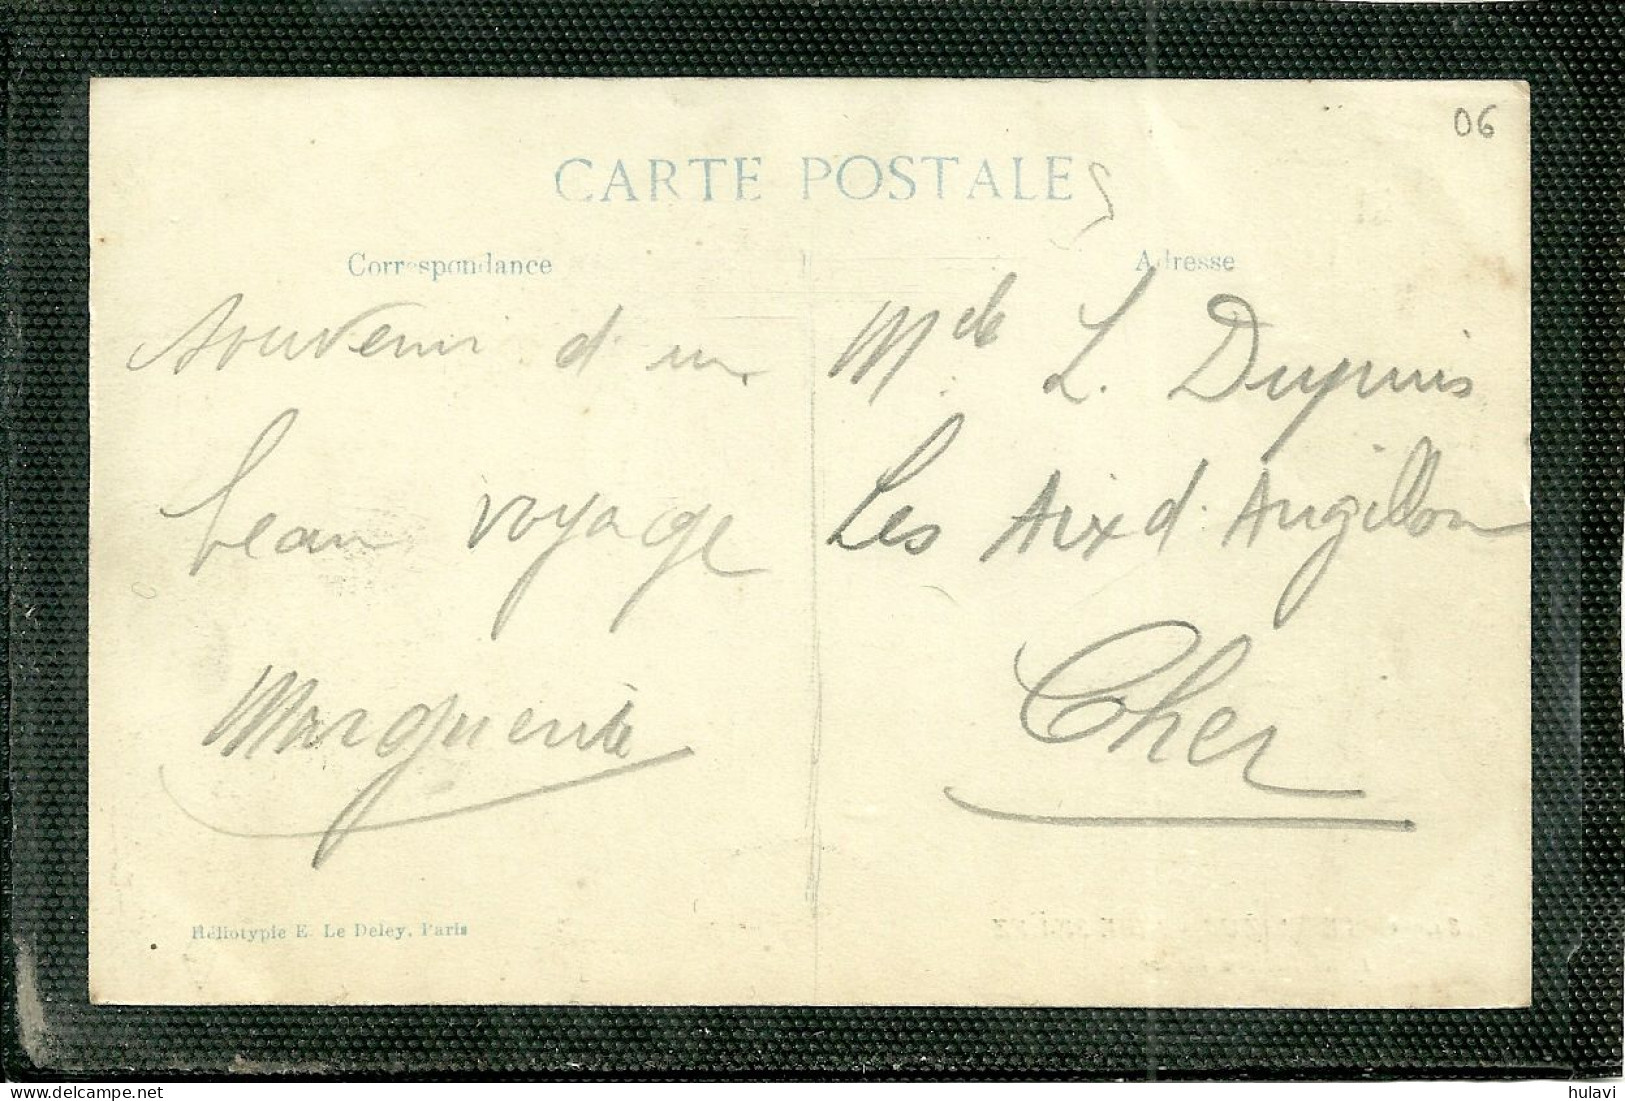 06
CARTE POSTALE
Correspondance
Adresse
Souvenir d'un
beau voyage
Marguerite
Mde L. Dupuis
Les Aix d'Angillon
Cher
Héliotypie E. Le Deley, Paris
hulavi